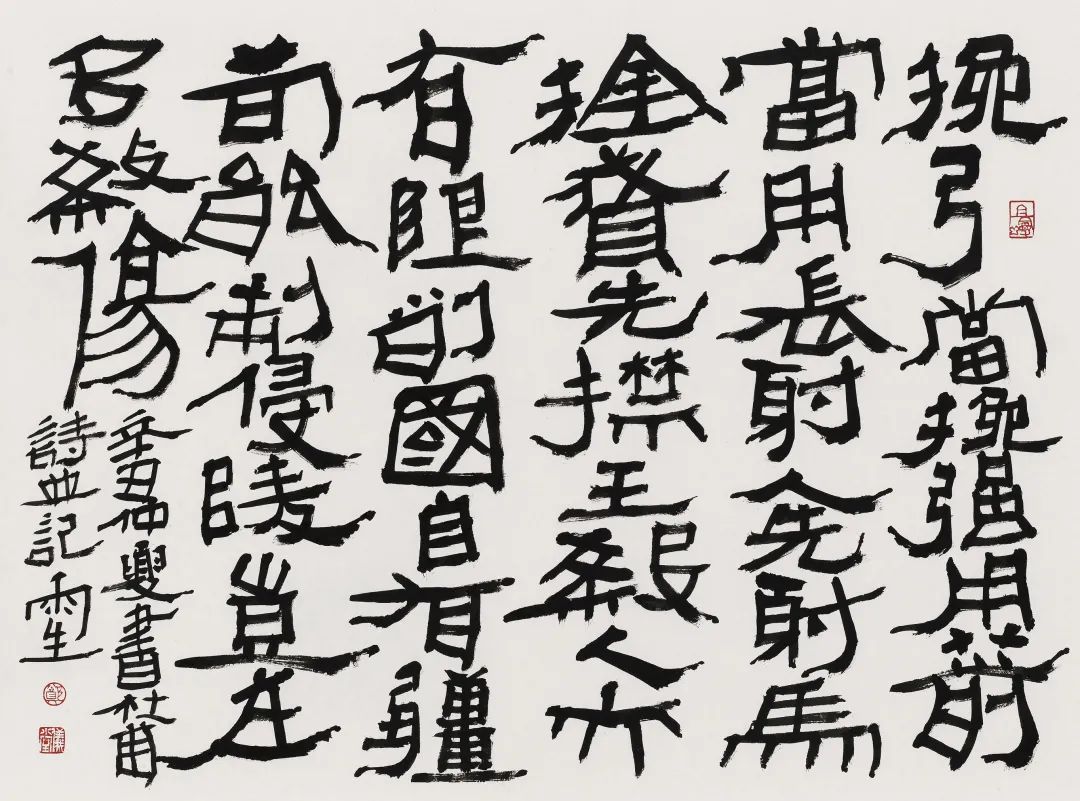 挽弓當挽强用箭
當用長射人先射馬
捦賊先㩒王殺人亦
有限列國自有疆
苟能制侵陵豈在
多殺傷
辛丑仲夏書杜甫
詩並記